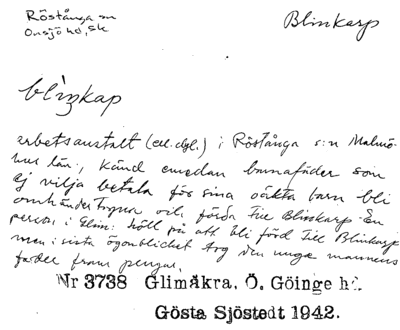 Röstånga sn
Onsjö hd, Sk
Blinkarp
bliŋkap
arbetsanstalt (ell. dyl.) i Röstånga s:n Malmö-
hus län, känd emedan barnafäder som
ej vilja betala för sina oäkta barn bli
omhändertagna och förda till Blinkarp. En
person i Glim. höll på att bli förd till Blinkarp
men i sista ögonblicket tog den unge mannens
fader fram pengar.
Nr 3738 Glimåkra, Ö. Göinge hd.
Gösta Sjöstedt 1942.